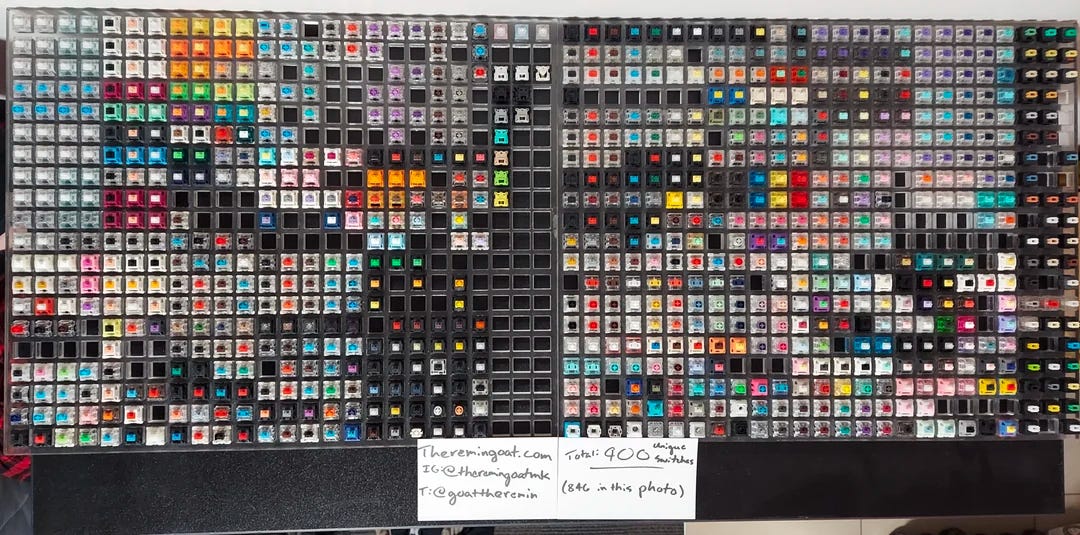 Theremingoat.com
IG:@theremingoatmk
T:@goattheremin
Total: 900 unique switches
(846 in this photo)